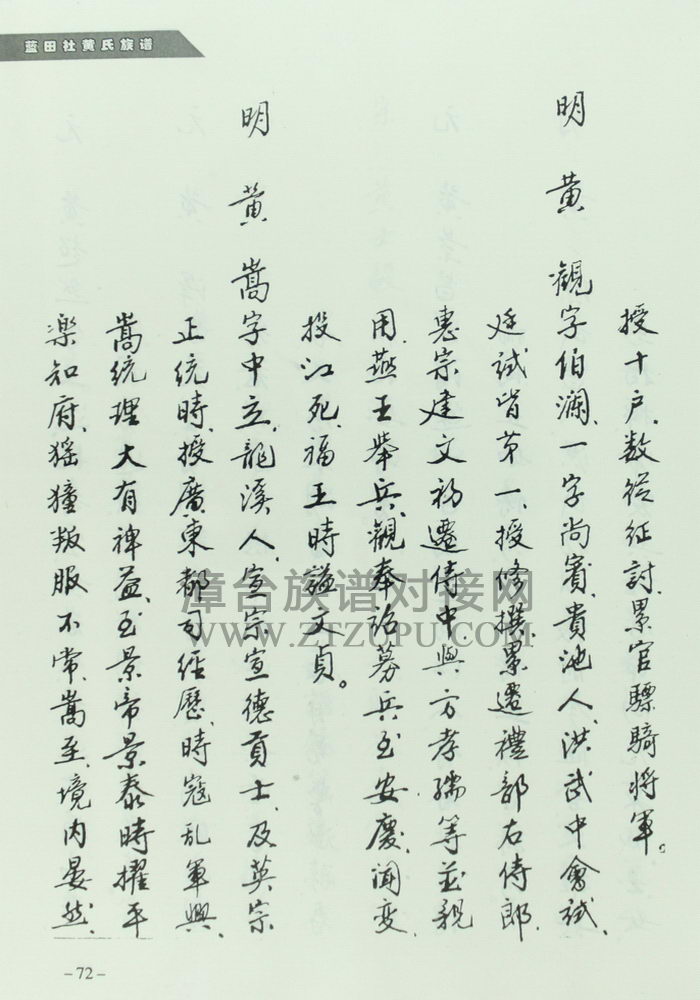 蓝田社黄氏族谱
授十户、数從征討、累官驃騎将軍。
明 黄 觀字伯瀾、一字尚賓、貴池人、洪武中會試、
廷試皆第一、授修撰、累遷禮部右侍郎、
惠宗建文初遷侍中、與方孝孺等並親
用、燕王举兵、觀奉詔募兵至安慶、闻变、
投江死、福王時謚文貞。
明 黄 嵩字中立、龍溪人、宣宗宣德貢士、及英宗
正统時、授廣東都司经歷、時寇乱軍興、
嵩统理大有裨益、至景帝景泰時擢平
樂知府、猺獞叛服不常、嵩至、境内晏然、
漳台族谱对接网
WWW.ZTZUPU.COM
-72-